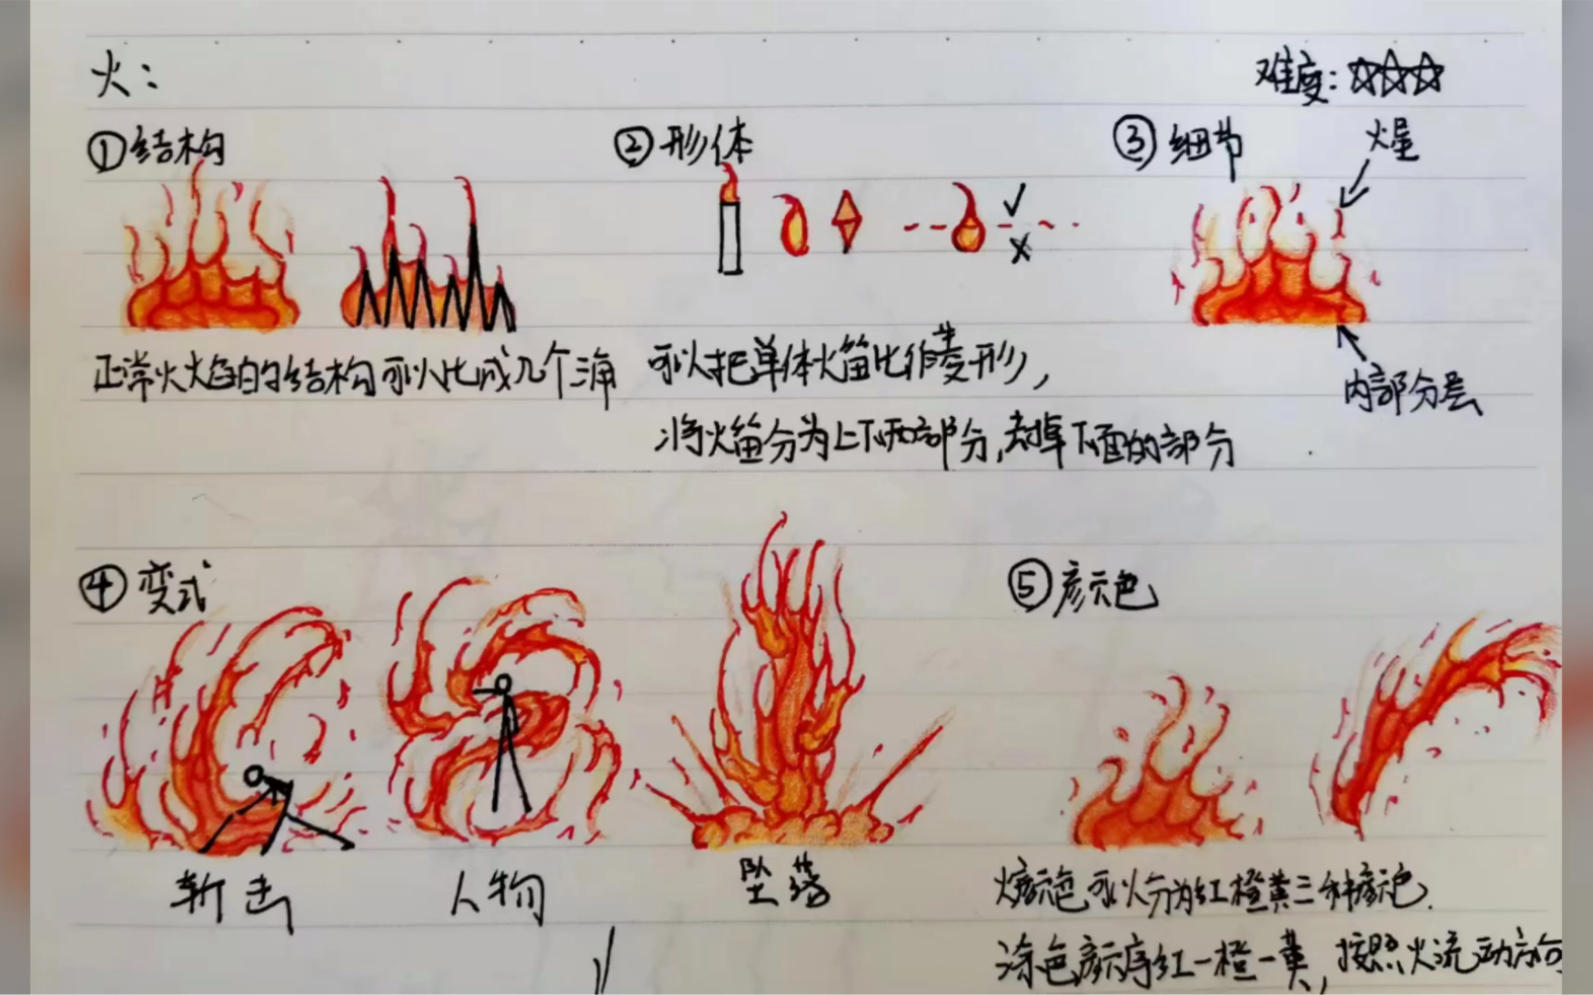 火：
难度：☆☆☆
①结构
②形体
③细节
火星
正常火焰的结构可以比成几个三角
可以把单体火苗比作菱形，
将火苗分为上下两部分，去掉下面的部分
内部分层
④变式
⑤颜色
斩击
人物
坠落
火颜色可以分为红橙黄三种颜色.
涂色顺序红一橙一黄，按照火流动方向